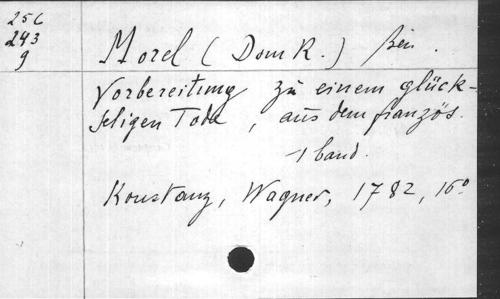 25C
243
9
Morel (Dom R.)
Vorbereitung zu einem glück-
seligen Tode, aus dem französ.
1 band.
Konstanz, Wagner, 1782, 16°